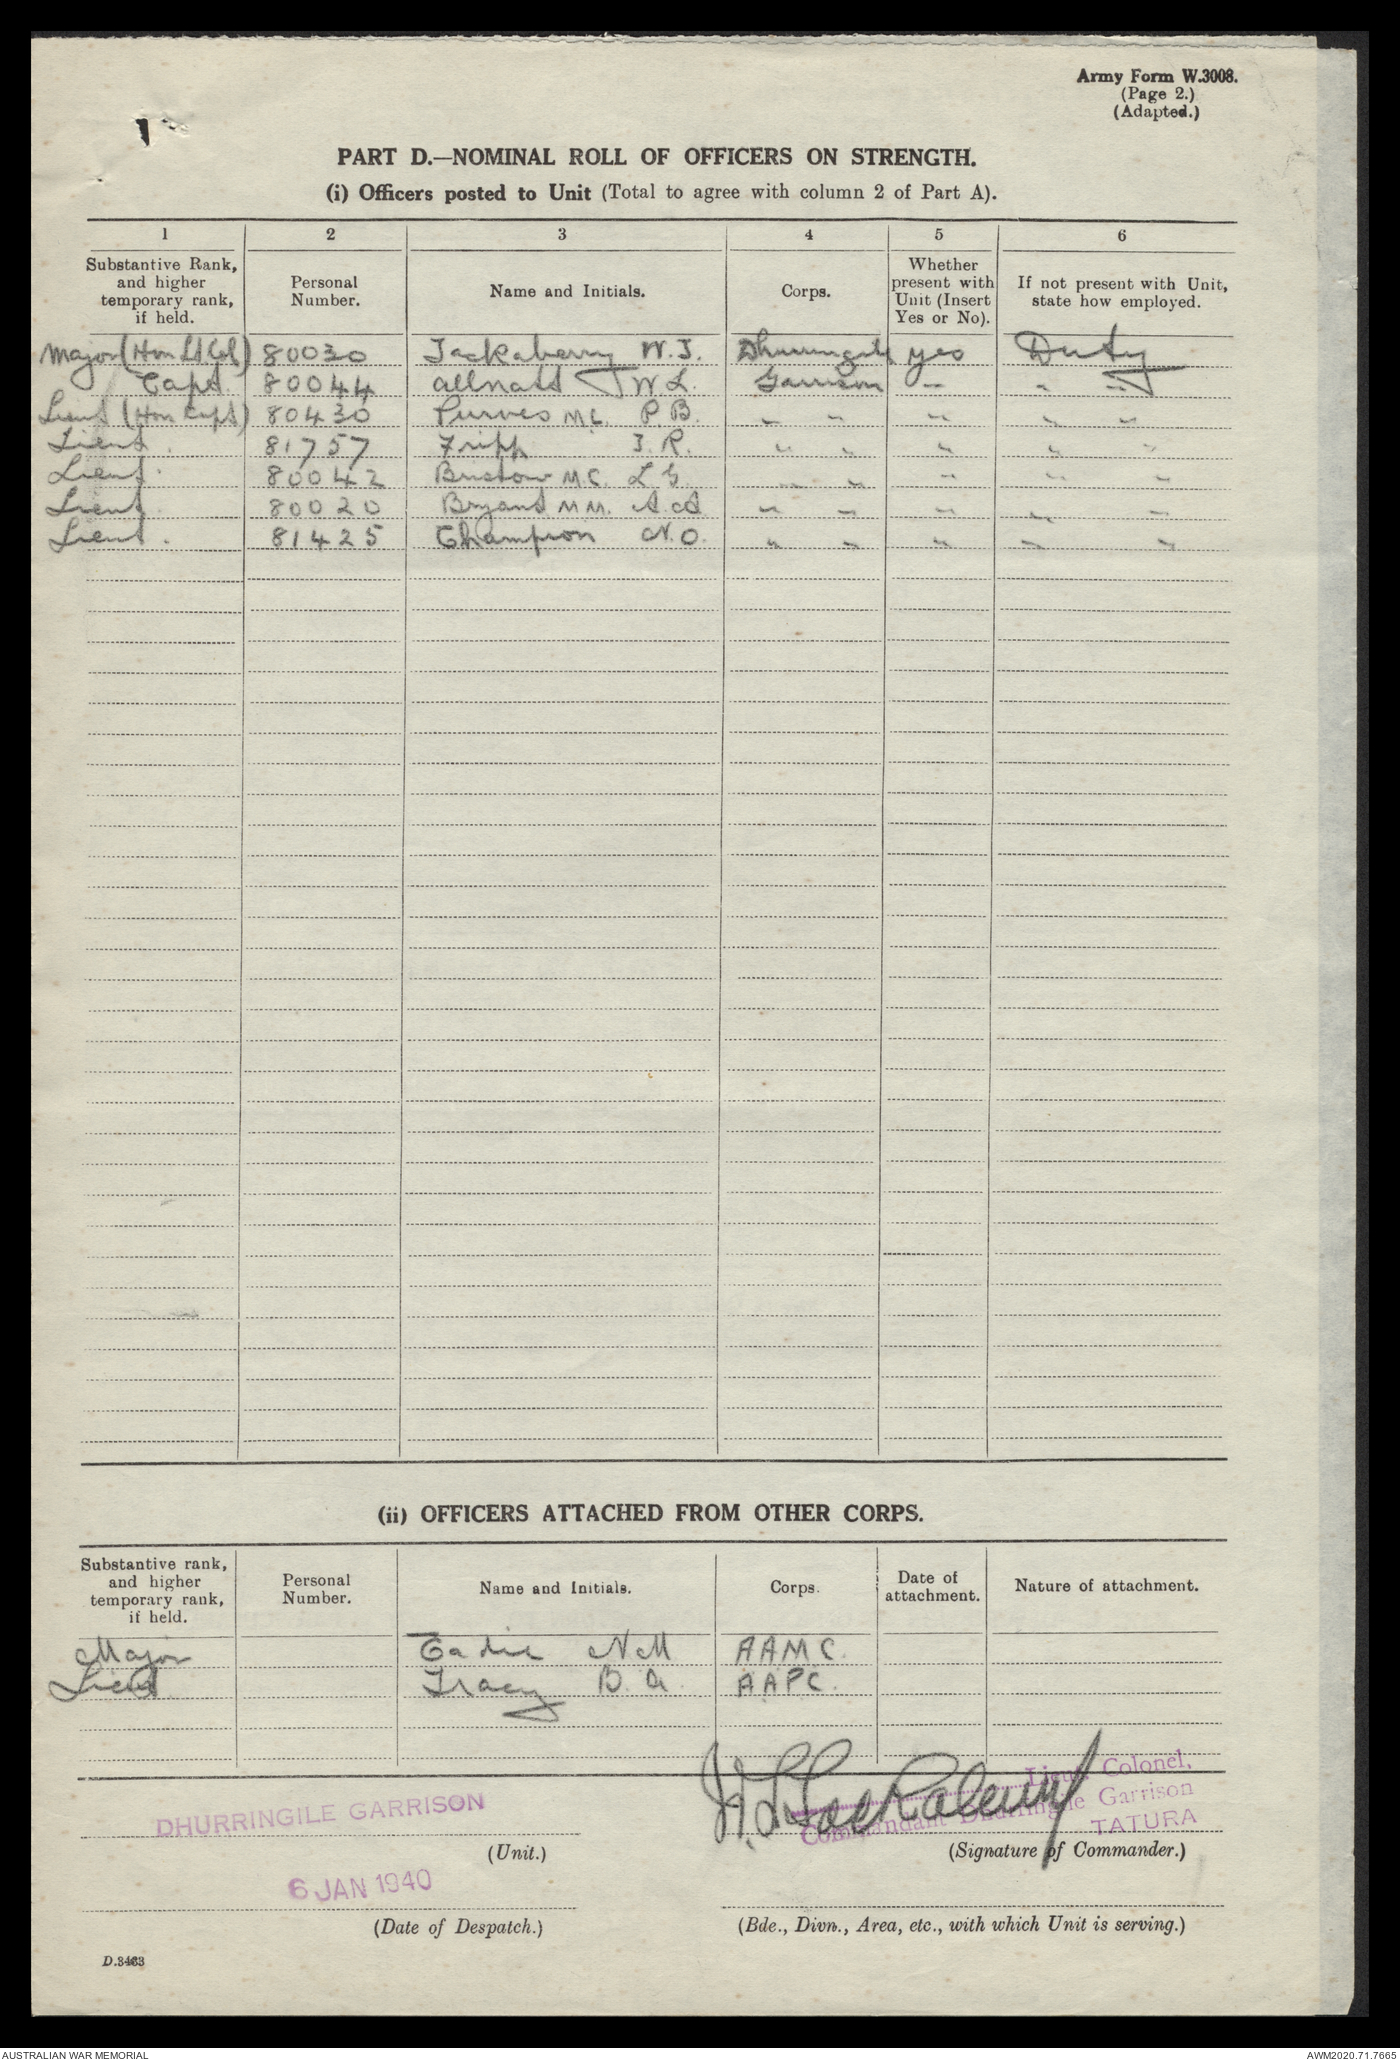 Army Form W.3008.
(Page 2.)
(Adapted.)
PART D.—NOMINAL ROLL OF OFFICERS ON STRENGTH.
(i) Officers posted to Unit (Total to agree with column 2 of Part A).
1 2 3 4 5 6
Substantive Rank, and higher temporary rank, if held. Personal Number. Name and Initials. Corps. Whether present with Unit (Insert Yes or No). If not present with Unit, state how employed.
Major (Hon Lt Col) 80030 Jackaberry W.J. Dhurringile yes Duty
Capt. 80044 Allnatt W L. Garrison " " "
Lieut (Hon Capt) 80430 Purves M.C. P.B. " " " " "
Lieut. 81757 Fripp J.R. " " " " "
Lieut. 80042 M.C. L G. " " " " "
Lieut. 80020 Bryant M M. " " " " "
Lieut. 81425 Champion N.O. " " " " "
(ii) OFFICERS ATTACHED FROM OTHER CORPS.
Substantive rank, and higher temporary rank, if held. Personal Number. Name and Initials. Corps. Date of attachment. Nature of attachment.
Major Eadie N M AAMC.
Lieut Tracy B. A. AAPC.
Lieut. Colonel,
DHURRINGILE GARRISON Commandant Dhurringile Garrison
TATURA
(Unit.) (Signature of Commander.)
6 JAN 1940
(Date of Despatch.) (Bde., Divn., Area, etc., with which Unit is serving.)
D.3463
AUSTRALIAN WAR MEMORIAL AWM2020.71.7665